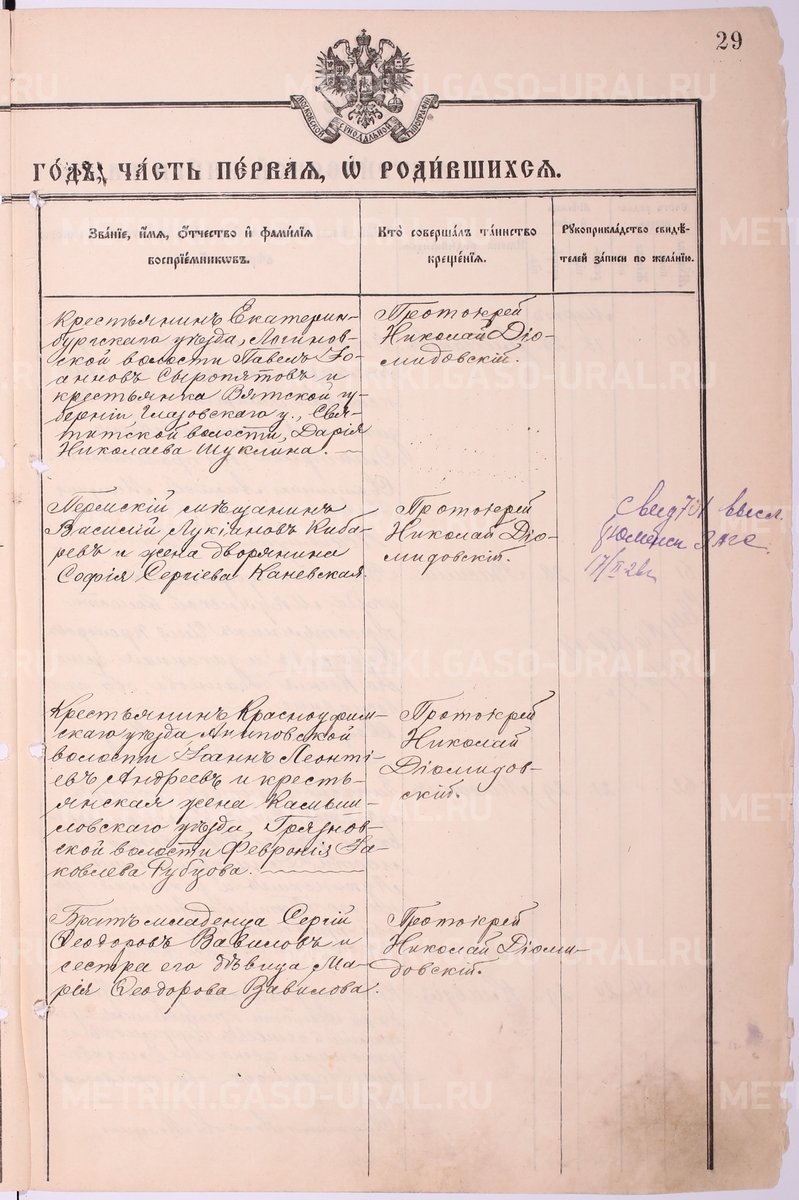 29
МОСКОВСКОЙ СѴНОДАЛЬНОЙ ТИПОГРАФІИ
ГО́ДѢ, ЧА́СТЬ ПЕ́РВАЯ, Ѡ҆ РОДИ́ВШИХСЯ.
Зва́нїе, и҆́мя, ѻ҆́тчество и҆ фами́лїя
воспрїе́мникѡвъ.
Кто̀ соверша́лъ та́инство
креще́нїя.
Рꙋкоприкла́дство свидѣ́-
телей за́писи по жела́нїю.
Крестьянинъ Екатерин-
бургскаго уѣзда, Логинов-
ской волости Павелъ Іо-
анновъ Сыропятовъ и
крестьянка Вятской гу-
берніи Глазовскаго у., Свя-
тицкой волости, Дарія
Николаева Шуклина.
Протоіерей
Николай Діо-
мидовскій.
Пермскій мѣщанинъ
Василій Лукіяновъ Киба-
ревъ и жена дворянина
Софія Сергіева Каневская.
Протоіерей
Николай Діо-
мидовскій.
высл.
17/II 26г
Крестьянинъ Красноуфим-
скаго уѣзда Ачитовской
волости Іоаннъ Леонті-
евъ Андреевъ и кресть-
янская жена Камыш-
ловскаго уѣзда, Грязнов-
ской волости Февронія Іа-
ковлева Рубцова.
Протоіерей
Николай
Діомидов-
скій.
Братъ младенца Сергій
Ѳеодоровъ Вавиловъ и
сестра его дѣвица Ма-
рія Ѳеодорова Вавилова.
Протоіерей
Николай Діоми-
довскій.
METRIKI.GASO-URAL.RU